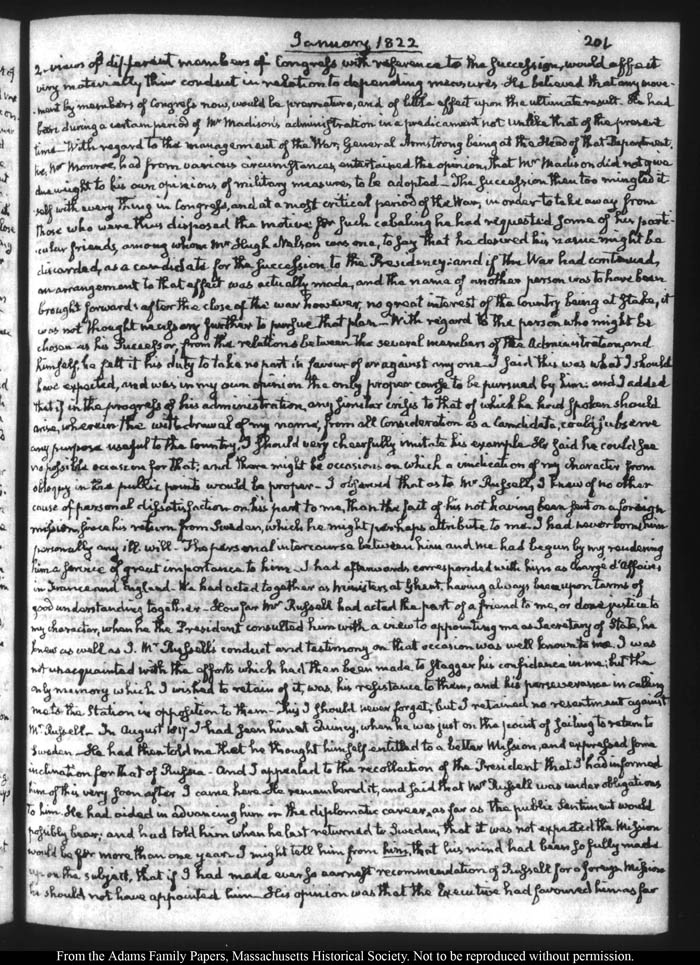 January 1822
201
2. views of different members of Congress with reference to the Succession, would affect
very materially their conduct in relation to depending measures. He believed that any move-
-ment by members of Congress now, would be premature, and of little effect upon the ultimate result. He had
been during a certain period of Mr Madison's administration in a predicament not unlike that of the present
time. With regard to the management of the War, General Armstrong being at the Head of that Department.
he, Mr Monroe, had from various circumstances, entertained the opinion, that Mr Madison did not give
due weight to his own opinions of military measures to be adopted — The Succession then too mingled it
self with every thing in Congress, and at a most critical period of the War, in order to take away from
those who were thus disposed the motive for such cabaling he had requested some of his parti-
-cular friends, among whom Mr Hugh Nelson was one, to say that he desired his name might be
discarded, as a candidate for the Succession to the Presidency: and if the War had continued,
an arrangement to that effect was actually made, and the name of another person was to have been
brought forward: after the close of the war however, no great interest of the Country being at Stake, it
was not thought necessary further to pursue that plan — With regard to the person who might be
chosen as his Successor, from the relations between the several members of the Administration, and
himself, he felt it his duty to take no part in favour of or against any one. I said this was what I should
have expected, and was in my own opinion the only proper course to be pursued by him: and I added
that if in the progress of his administration, any similar crisis to that of which he had spoken should
arise, wherein the withdrawal of my name, from all Consideration as a Candidate, could subserve
any purpose useful to the Country, I should very cheerfully imitate his example. He said he could see
no possible occasion for that; and there might be occasions on which a vindication of my character from
obloquy in the public prints would be proper — I observed that as to Mr Russell, I knew of no other
cause of personal dissatisfaction on his part to me, than the fact of his not having been sent on a foreign
mission, since his return from Sweden, which he might perhaps attribute to me. I had never borne him
personally any ill will — The personal intercourse between him and me had begun by my rendering
him a service of great importance to him. I had afterwards corresponded with him as Chargé d'Affaires
in France and England. We had acted together as ministers at Ghent, having always been upon terms of
good understanding together — How far Mr Russell had acted the part of a friend to me, or done justice to
my character, when he the President consulted him with a view to appointing me as Secretary of State, he
knew as well as I. Mr Russell's conduct and testimony on that occasion was well known to me. I was
not unacquainted with the efforts which had then been made to stagger his confidence in me; but the
only memory which I wished to retain of it, was, his resistance to them, and his perseverance in calling
me to the Station in opposition to them — This I should never forget, but I retained no resentment against
Mr Russell — In August 1817 I had seen him at Quincy, when he was just on the point of sailing to return to
Sweden — He had then told me that he thought himself entitled to a better Mission, and expressed some
inclination for that of Russia — And I appealed to the recollection of the President that I had informed
him of this very soon after I came here. He remembered it, and said that Mr Russell was under obligations
to him. He had aided in advancing him in the diplomatic career, as far as the public sentiment would
possibly bear; and had told him when he last returned to Sweden, that it was not expected the Mission
would be for more than one year. I might tell him from him, that his mind had been so fully made
up on the subject, that if I had made ever so earnest recommendation of Russell for a foreign Mission
he should not have appointed him — His opinion was that the Executive had favoured him as far
From the Adams Family Papers, Massachusetts Historical Society. Not to be reproduced without permission.